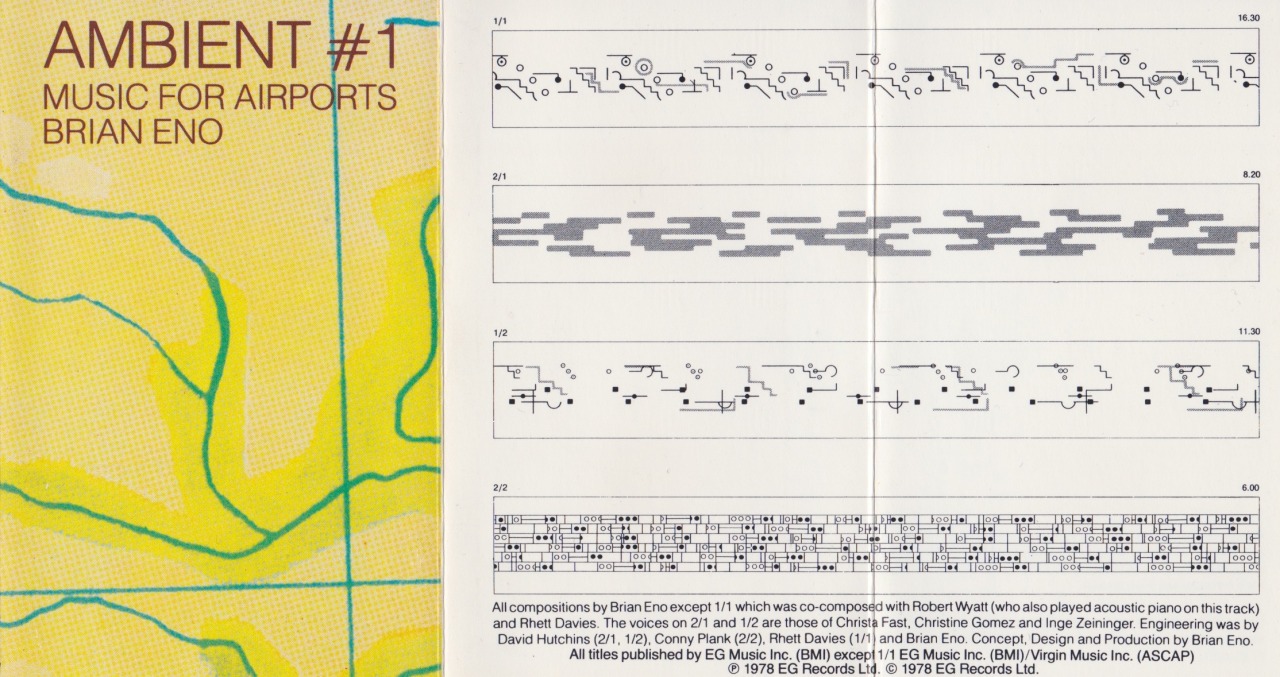 AMBIENT #1
MUSIC FOR AIRPORTS
BRIAN ENO
1/1 16.30
2/1 8.20
1/2 11.30
2/2 6.00
All compositions by Brian Eno except 1/1 which was co-composed with Robert Wyatt (who also played acoustic piano on this track)
and Rhett Davies. The voices on 2/1 and 1/2 are those of Christa Fast, Christine Gomez and Inge Zeininger. Engineering was by
David Hutchins (2/1, 1/2), Conny Plank (2/2), Rhett Davies (1/1) and Brian Eno. Concept, Design and Production by Brian Eno.
All titles published by EG Music Inc. (BMI) except 1/1 EG Music Inc. (BMI)/Virgin Music Inc. (ASCAP)
℗ 1978 EG Records Ltd. © 1978 EG Records Ltd.